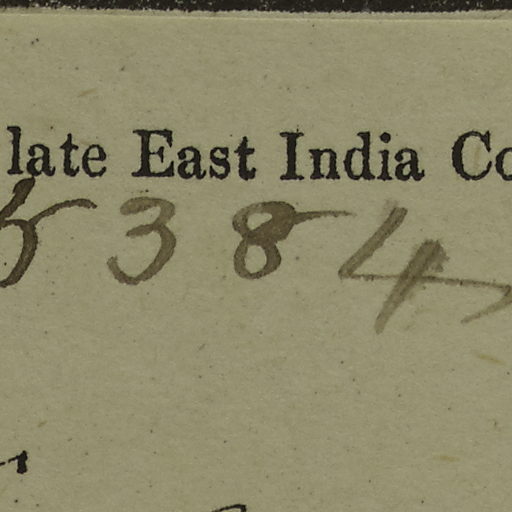 late East India Co
5384